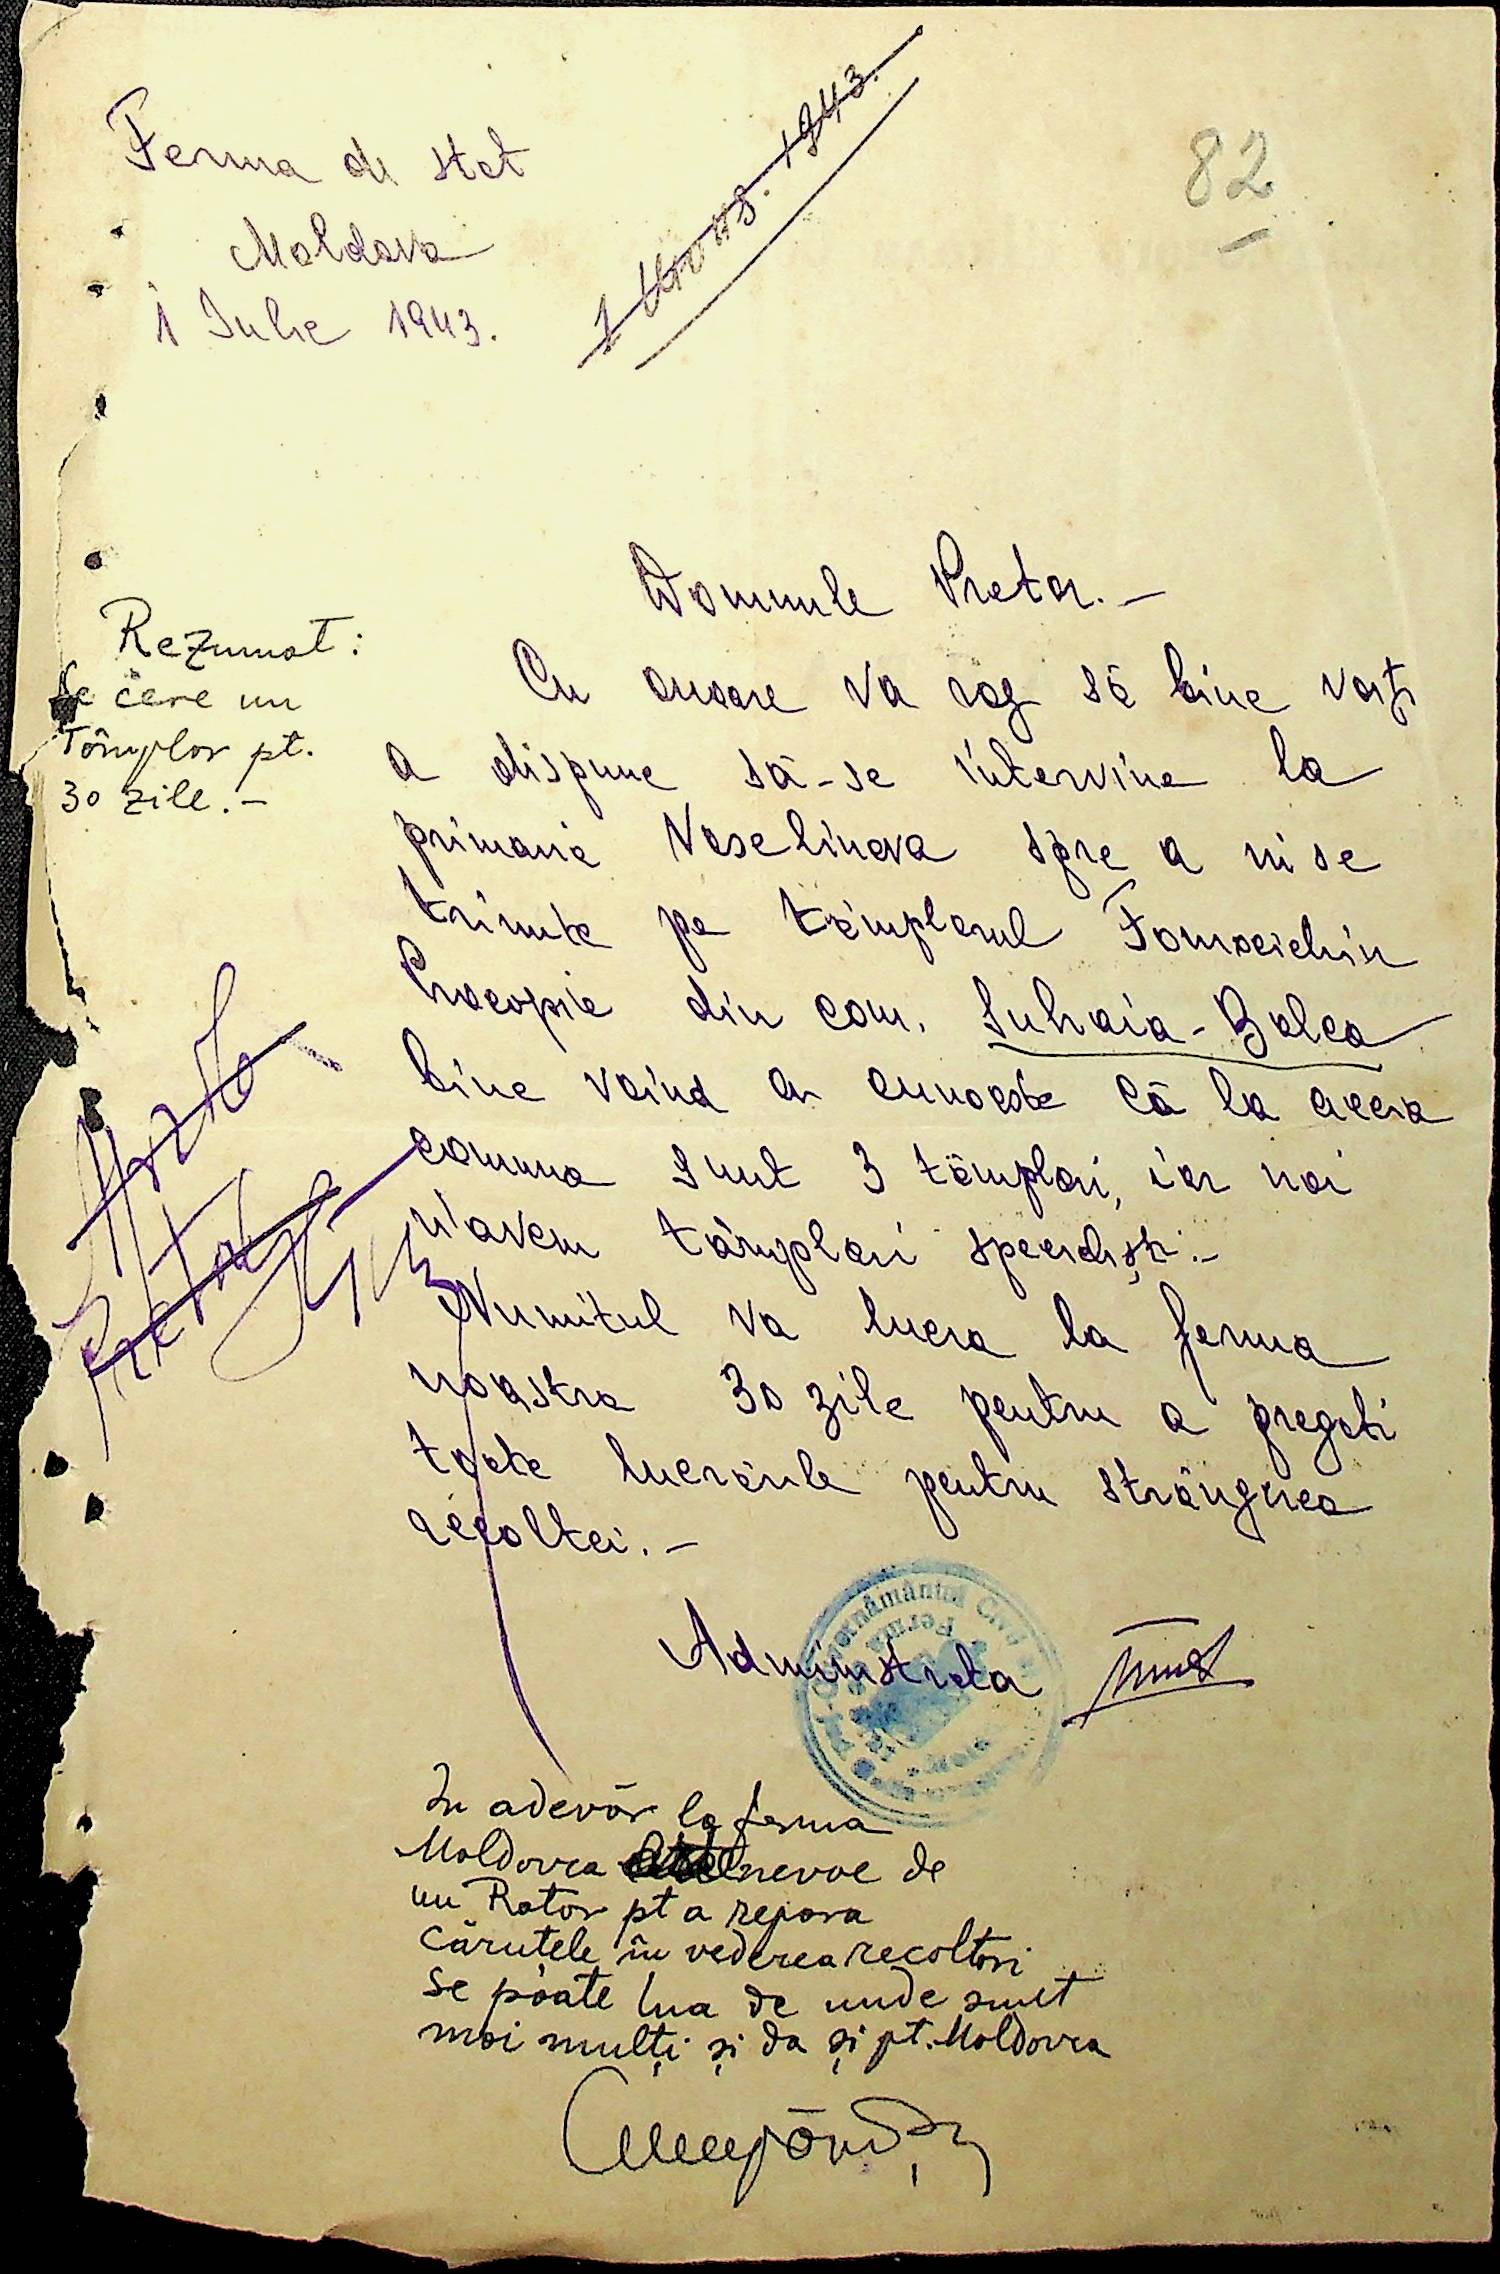 Ferma de stat
Moldova
1 Iulie 1943.
1943.
82
Domnule Pretor.-
Rezumat:
Se cere un
Tâmplar pt.
30 zile.-
Cu onoare Va rog să bine voiți
a dispune să-se intervine la
primarie Veselineva spre a ni se
trimite pe tâmplarul
Procopie din com. Suhaia-Balca
bine voind a cunoaște că la acea
comuna sunt 3 tâmplari, iar noi
n'avem tâmplari specialiști.-
Numitul va lucra la ferma
noastra 30 zile pentru a pregati
toate lucrările pentru strângerea
recoltei.-
Pretor
Administrator
Guvernământul Civil
Ferma
In adevăr la ferma
Moldova nevoe de
un Rotar pt a repara
căruțele în vederea recoltări
se poate lua de unde sunt
mai mulți și da și pt. Moldova